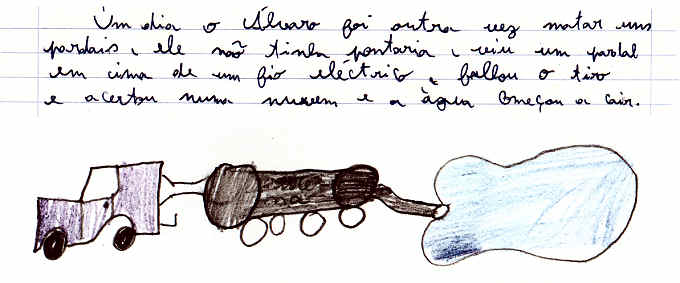 Um dia o Álvaro foi outra vez matar uns
pardais, ele não tinha pontaria, viu um pardal
em cima de um fio eléctrico, falhou o tiro
e acertou numa nuvem e a àgua começou a cair.